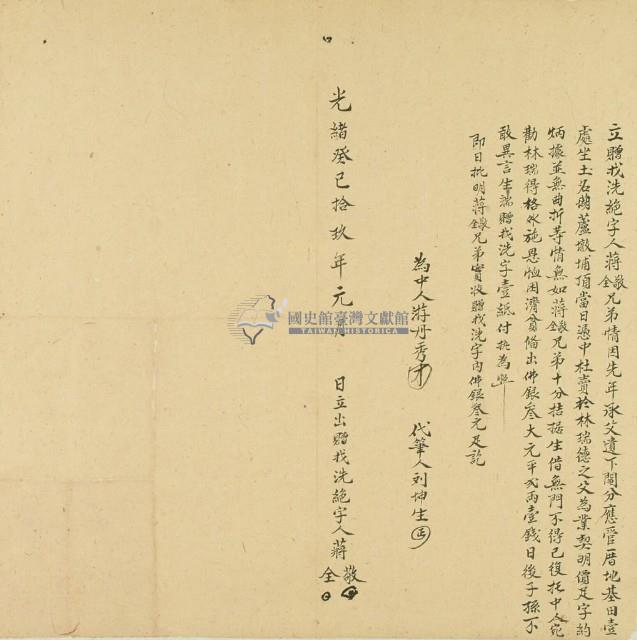 立贈找洗絕字人蔣敬全兄弟情因先年承父遺下鬮分應管厝地基田壹
處坐土名葫蘆墩埔頂當日憑中杜賣於林瑞德之父為業契明價足字約
炳據並無曲折等情無如蔣敬全兄弟十分拮据生借無門不得已復托中人宛
勸林瑞得格外施恩恤困濟貧備出佛銀叁大元平弍両壹錢日後子孫不
敢異言生端贈找洗字壹紙付執為炤
即日批明蔣敬全兄弟實收贈找洗字內佛銀叁元足訖
為中人蔣丹秀
代筆人刘坤生
光緒癸巳拾玖年元月 日立出贈找洗絕字人蔣敬全
國史館臺灣文獻館
TAIWAN HISTORICA